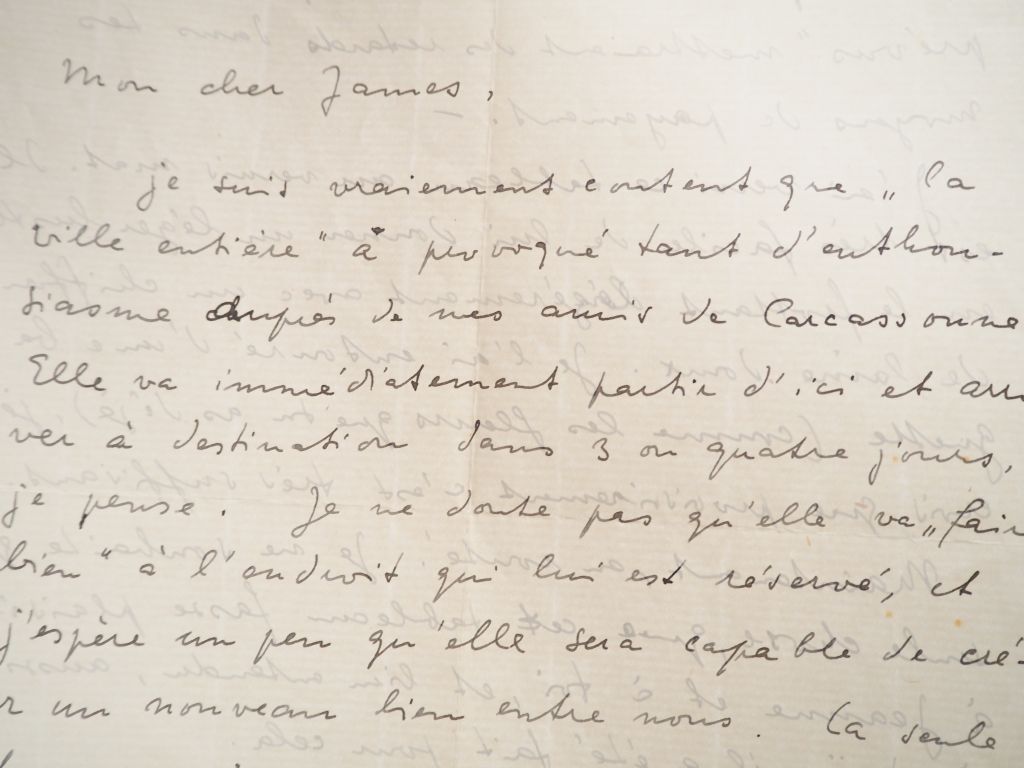 Mon cher James,
je suis vraiement content que „ la
ville entière " à provoqué tant d'enthou-
siasme auprès de mes amis de Carcassonne
Elle va immédiatement partir d'ici et arri
ver à destination dans 3 ou quatre jours,
je pense. Je ne doute pas qu'elle va „ fair
bien " à l'endroit qui lui est réservé, et
j'espère un peu qu'elle sera capable de cré-
r un nouveau lien entre nous. La seule